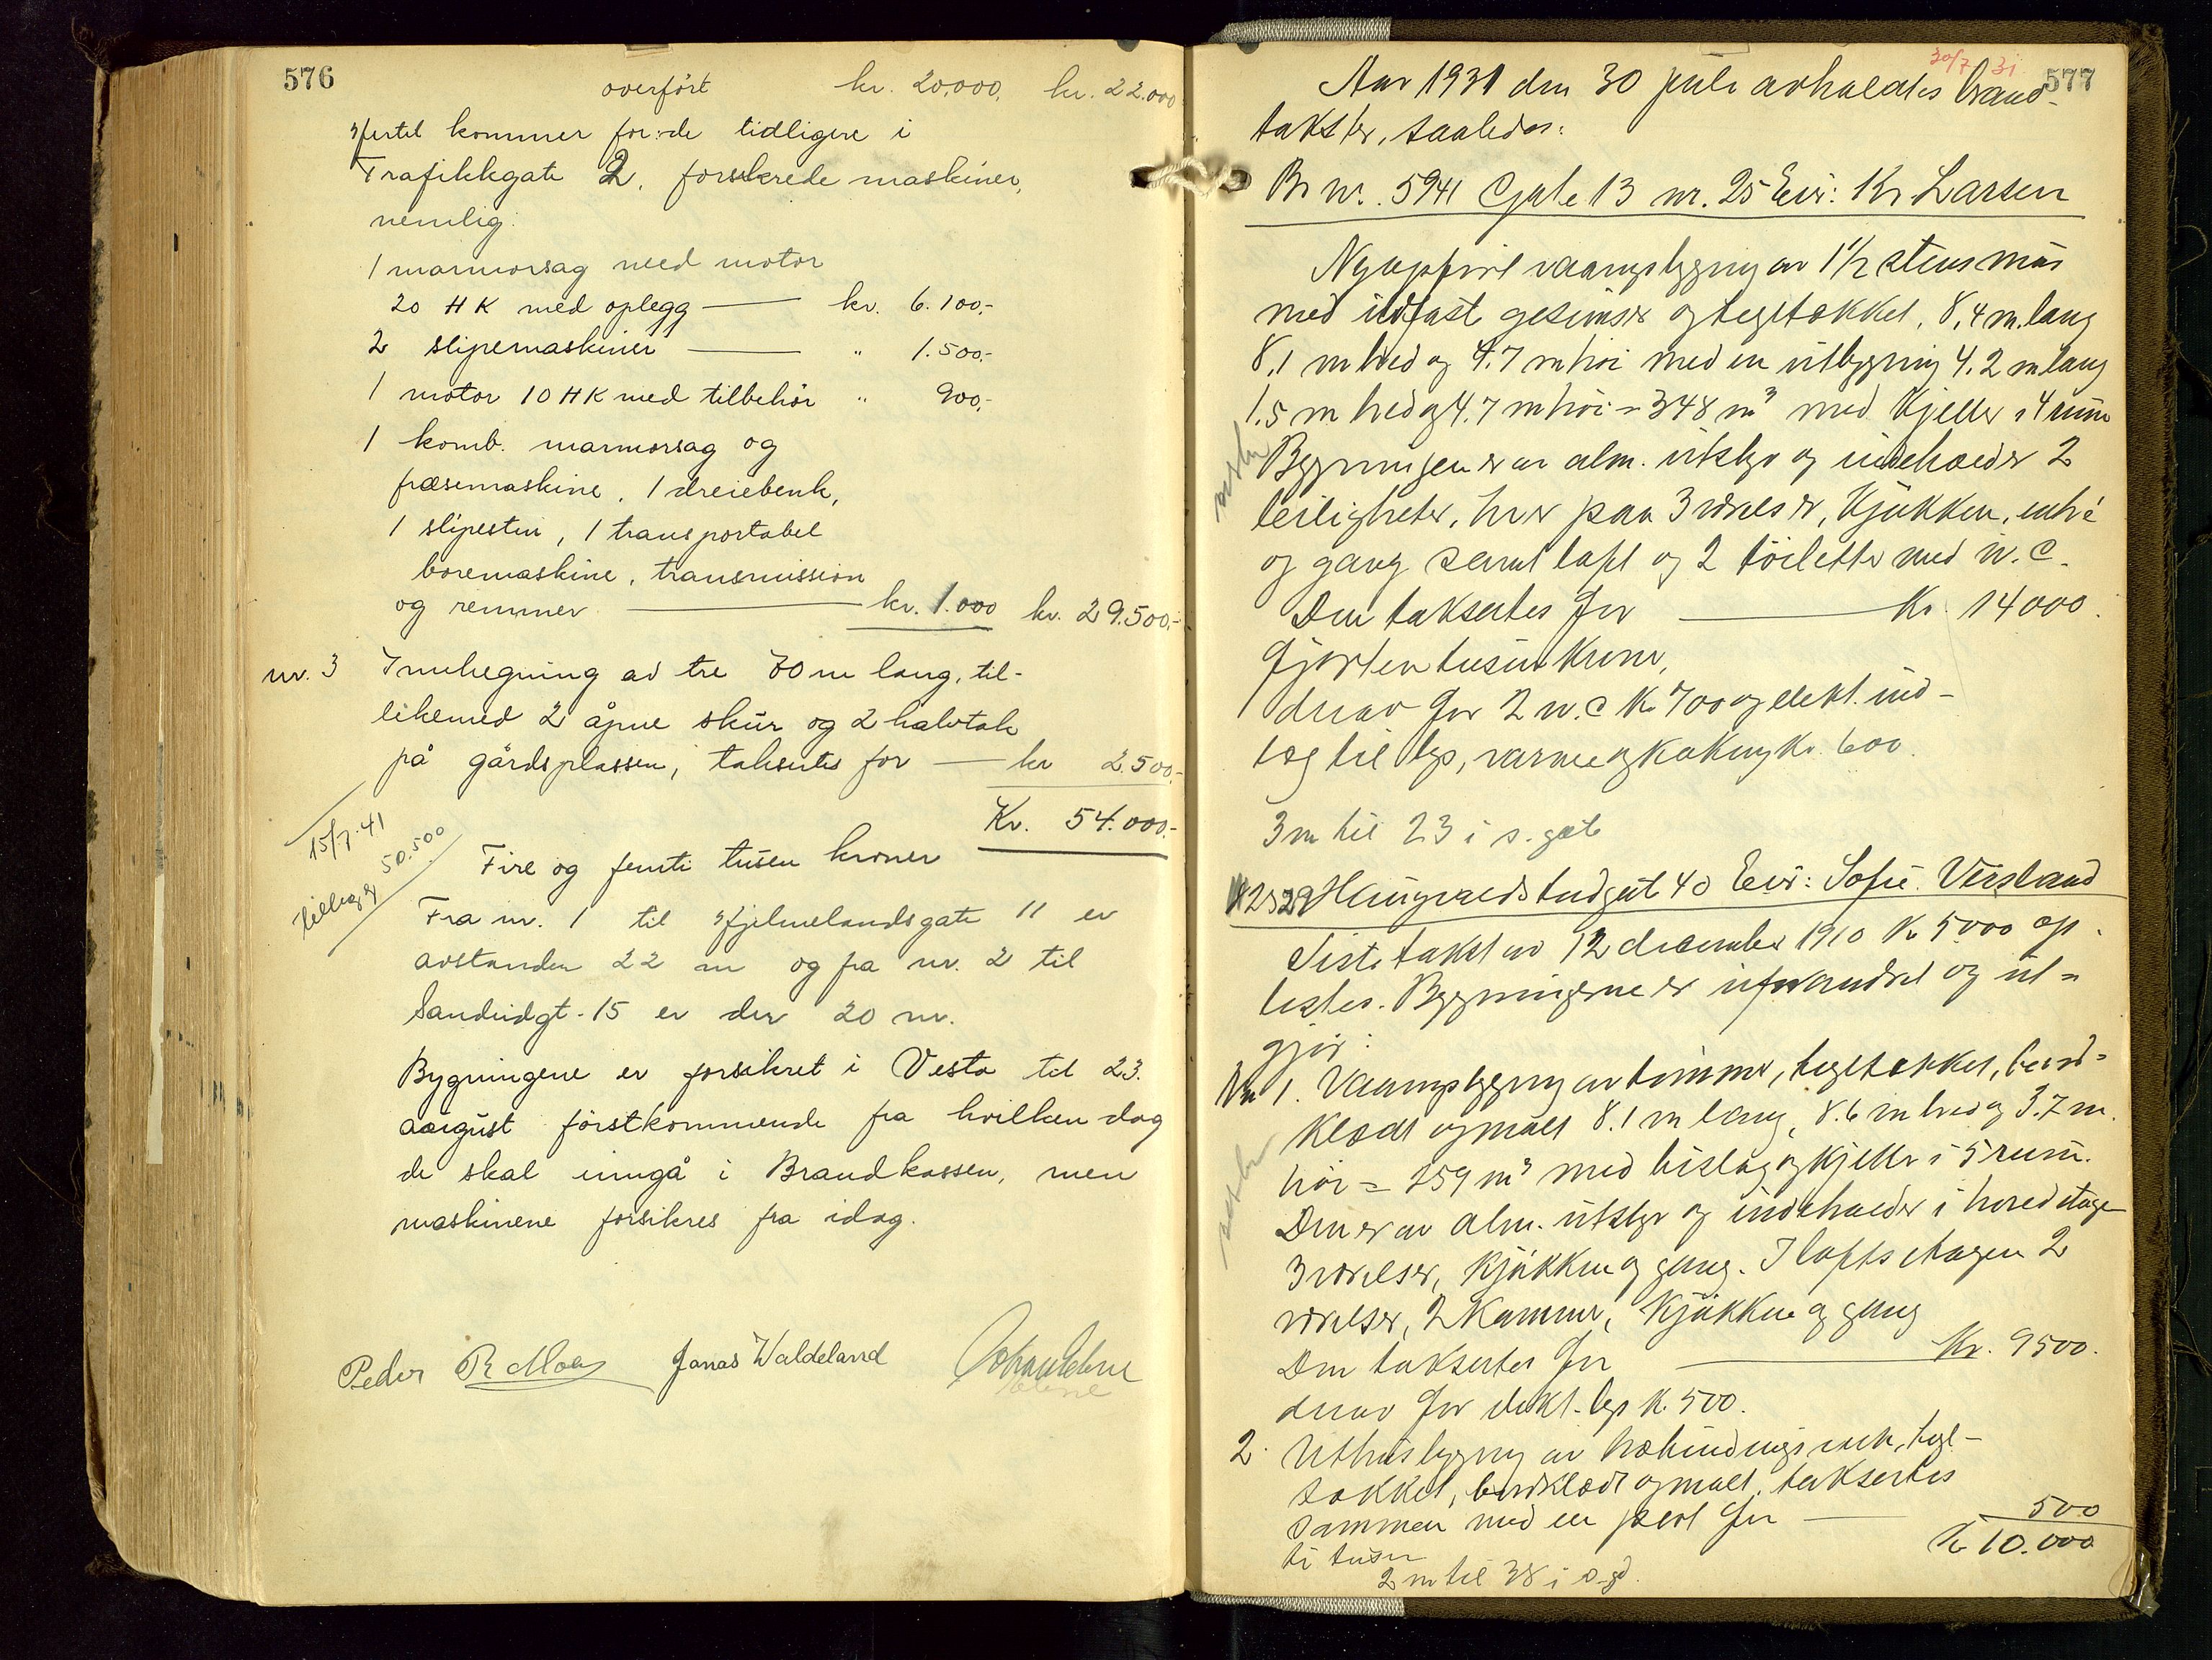 576
overført kr. 20.000, kr. 22.000
Hertil kommer for:de tidligere i
Trafikkgate 2. forsikrede maskiner,
nemlig:
1 marmorsag med motor
20 HK med oplegg — kr. 6.100,-
2 slipemaskiner — " 1.500,-
1 motor 10 HK med tilbehör " 900,-
1 komb. marmorsag og
fræsemaskine, 1 dreiebenk,
1 slipesten, 1 transportabel
boremaskine, transmission
og remmer — kr. 1.000 kr. 29.500,-
nr. 3 Innhegning av tre 70 m lang, til-
likemed 2 åpne skur og 2 halvtak
på gårdsplassen, takseres for — kr 2.500,-
Kr. 54.000,-
15/7-41
tillegg 50.500
Fire og femti tusen kroner
Fra nr. 1 til Hjelmelandsgate 11 er
avstanden 22 m og fra nr. 2 til
Sandeidgt. 15 er der 20 m.
Bygningene er forsikret i Vesta til 23.
august förstkommende fra hvilken dag
de skal inngå i Brandkassen, men
maskinene forsikres fra idag.
Peder R Moe Jonas Waldeland
577
30/7 31
Aar 1931 den 30 juli avholdtes brand-
takster, saaledes:
Br. nr. 5941 Gate 13 nr. 25 Eier: Kr Larsen
Nyopført vaaningsbygning av 1 1/2 stens mur
med ildfast gesimser og tegltækket, 8,4 m. lang
8.1 m bred og 4.7 m høi med en utbygning 4.2 m lang
1.5 m bred og 4.7 m høi = 348 m³ med kjeller i 4 rum
Bygningen er av alm. utstyr og indeholder 2
leiligheter, hver paa 3 værelser, kjøkken, entré
og gang samt loft og 2 toiletter med w.c.
Den takseres for — Kr. 14000.
Fjorten tusen kroner,
derav for 2 w.c Kr 700 og elekt. ind-
læg til lys, varme og kokning Kr. 600.
3 m til 23 i s. gate
2529 Haugvaldstadgat 40 Eier: Sofie Virsland
Siste takst av 12 december 1910 Kr 5000 op-
læstes. Bygningerne er uforandret og ut-
gjør:
Nr 1. Vaaningsbygning av tømmer, tegltækket, bord-
klædt og malt 8.1 m lang, 8.6 m bred og 3.7 m.
høi = 259 m³ med bislag og kjeller i 5 rum.
Den er av alm. utstyr og indeholder i hovedetage
3 værelser, kjøkken og gang. I loftsetagen 2
værelser, 2 kammer, kjøkken og gang
Den takseres for — Kr. 9500.
derav for elekt. lys Kr. 500.
2. Uthusbygning av træbindingsverk, tegl-
tækket, bordklædt og malt, takseres
sammen med en port for — 500
Kr 10.000
ti tusen
2 m til 38 i s. gd.